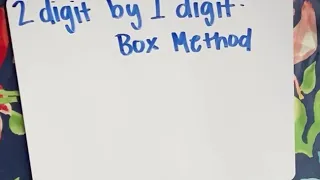 2 digit by 1 digit.
Box Method